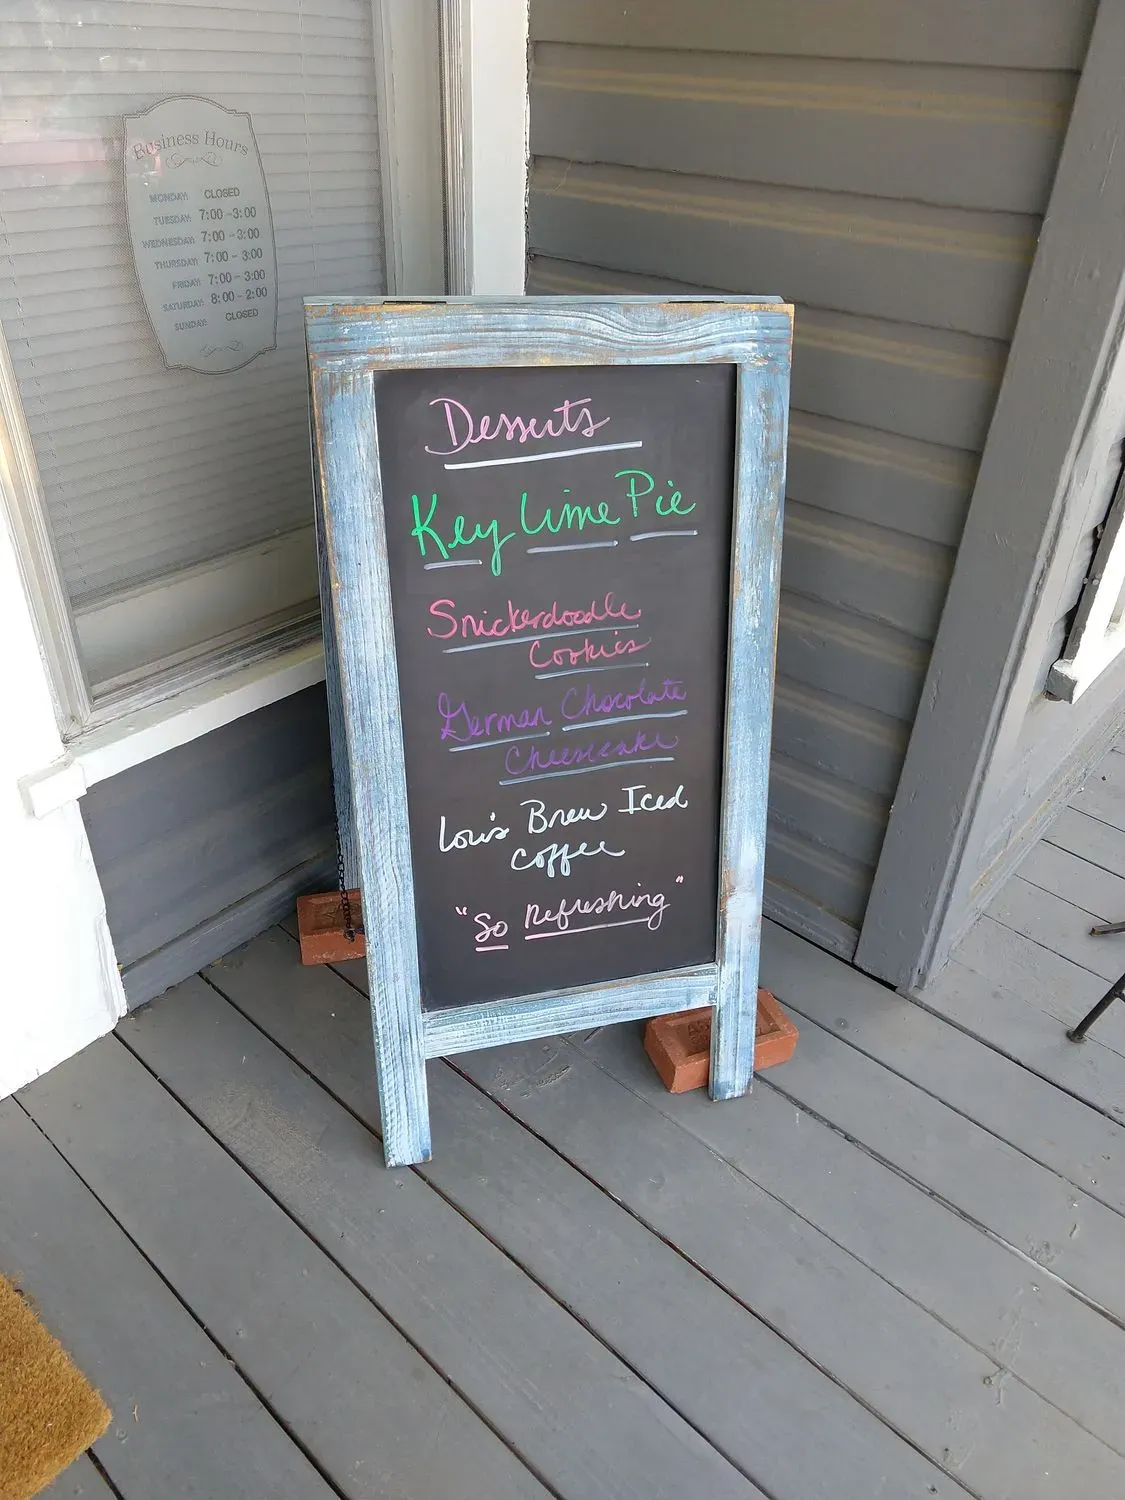 Business Hours
MONDAY: CLOSED
TUESDAY: 7:00 - 3:00
WEDNESDAY: 7:00 - 3:00
THURSDAY: 7:00 - 3:00
FRIDAY: 7:00 - 3:00
SATURDAY: 8:00 - 2:00
SUNDAY: CLOSED
Desserts
Key Lime Pie
Snickerdoodle
Cookies
German Chocolate
Cheesecake
Lou's Brew Iced
Coffee
"So Refreshing"